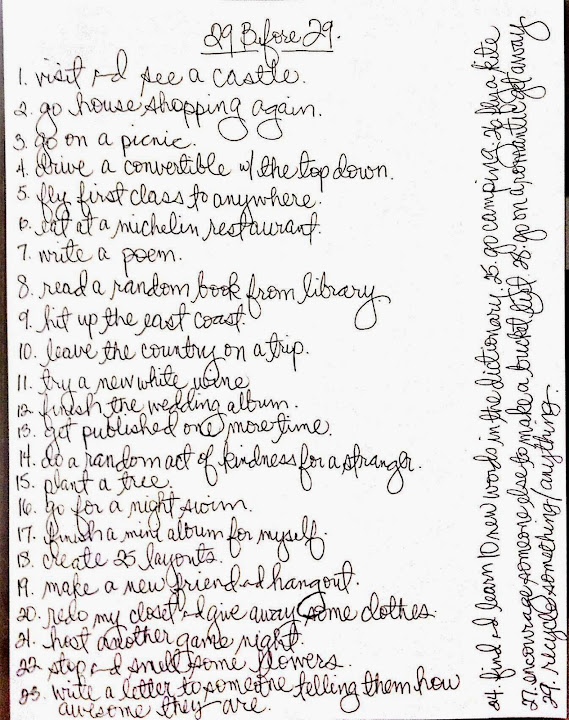 29 Before 29.
1. visit and see a castle.
2. go house shopping again.
3. go on a picnic.
4. drive a convertible w/ the top down.
5. fly first class to anywhere.
6. eat at a michelin restaurant.
7. write a poem.
8. read a random book from library
9. hit up the east coast.
10. leave the country on a trip.
11. try a new white wine
12. finish the wedding album.
13. get published one more time.
14. do a random act of kindness for a stranger.
15. plant a tree.
16. go for a night swim.
17. finish a mini album for myself.
18. create 25 layouts.
19. make a new friend and hangout.
20. redo my closet and give away some clothes.
21. host another game night.
22. stop and smell some flowers.
23. write a letter to someone telling them how
awesome they are.
24. find and learn 10 new words in the dictionary. 25. go camping. 26. fly a kite
27. encourage someone else to make a bucket list. 28. go on a romantic get away
29. recycle something/anything.